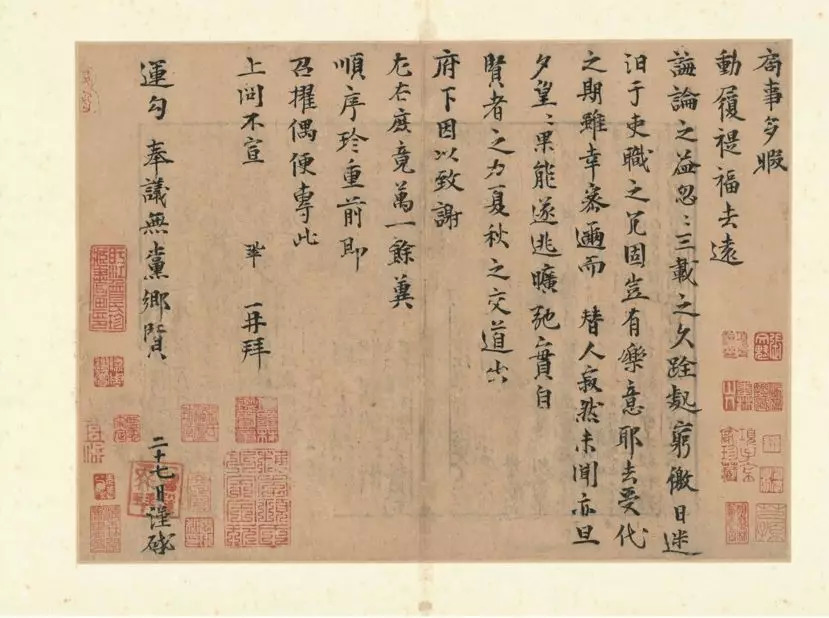 局事多暇
動履禔福去遠
誨論之益忽〻三載之久跧處窮徼日迷
汨于吏職之冗固豈有樂意耶去受代
之期雖幸密邇而替人寂然未聞亦旦
夕望〻果能遂逃曠弛實自
賢者之力夏秋之交道出
府下因以致謝
左右庶竟萬一餘冀
順序珍重前即
召擢偶便專此
上問不宣 鞏 再拜
運勾奉議無黨鄉賢 二十七日謹啟
項子京家珍藏